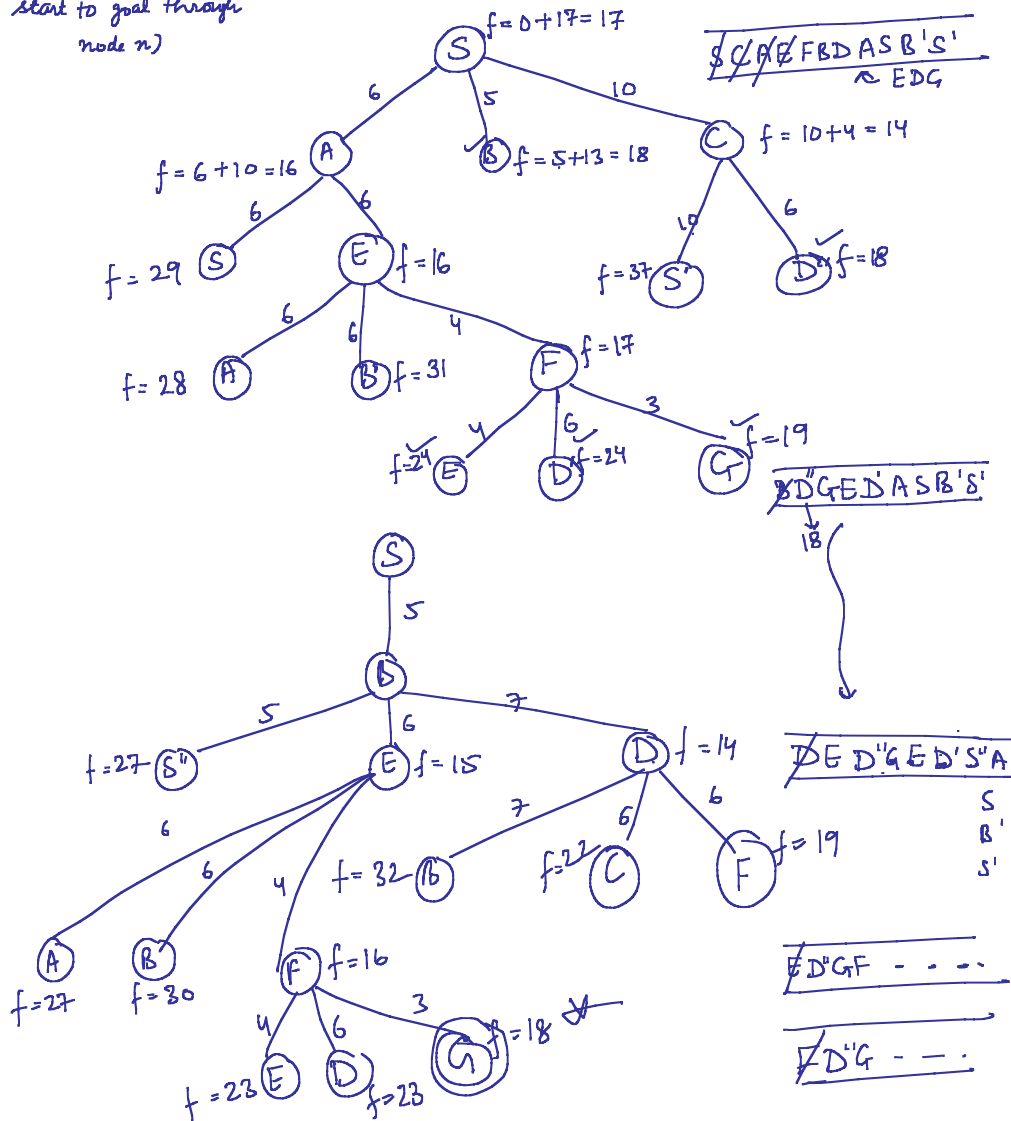 start to goal through
node n)
S f=0+17=17
$ C A E F B D A S B'S'
EDG
6 5 10
A f=6+10=16
B f=5+13=18
C f=10+4=14
6 6 10 6
S f=29
E f=16
S' f=37
D" f=18
6 6 4
A f=28
B' f=31
F f=17
4 6 3
E f=24
D' f=24
G f=19
B D"G E D' A S B'S'
18
S
5
B
5 6 7
f=27 S"
E f=15
D f=14
D E D"G E D'S"A
S
B'
S'
6 6 4 7 6 6
f=32 B
f=22 C
F f=19
A f=27
B f=30
F f=16
E D"GF - - - -
4 6 3
f=23 E
D f=23
G f=18
F D"G - - - .